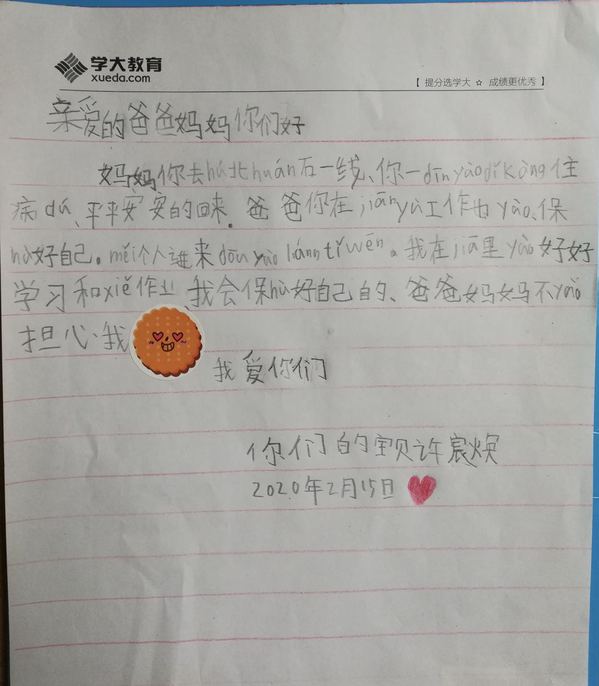 学大教育
xueda.com
【 提分选学大 ☆ 成绩更优秀 】
亲爱的爸爸妈妈你们好
妈妈你去hú北huán后一线、你一dīnyàodǐkàng住
病dú、平平安安的回来。爸爸你在jiānyù工作也yào、保
hù好自己。měi个人谁来dōuyàoliánntǐwēn。我在jiā里yào好好
学习和xiě作业、我会保hù好自己的、爸爸妈妈不yào
担心我
我爱你们
你们的宝贝许宸焕
2020年2月15日